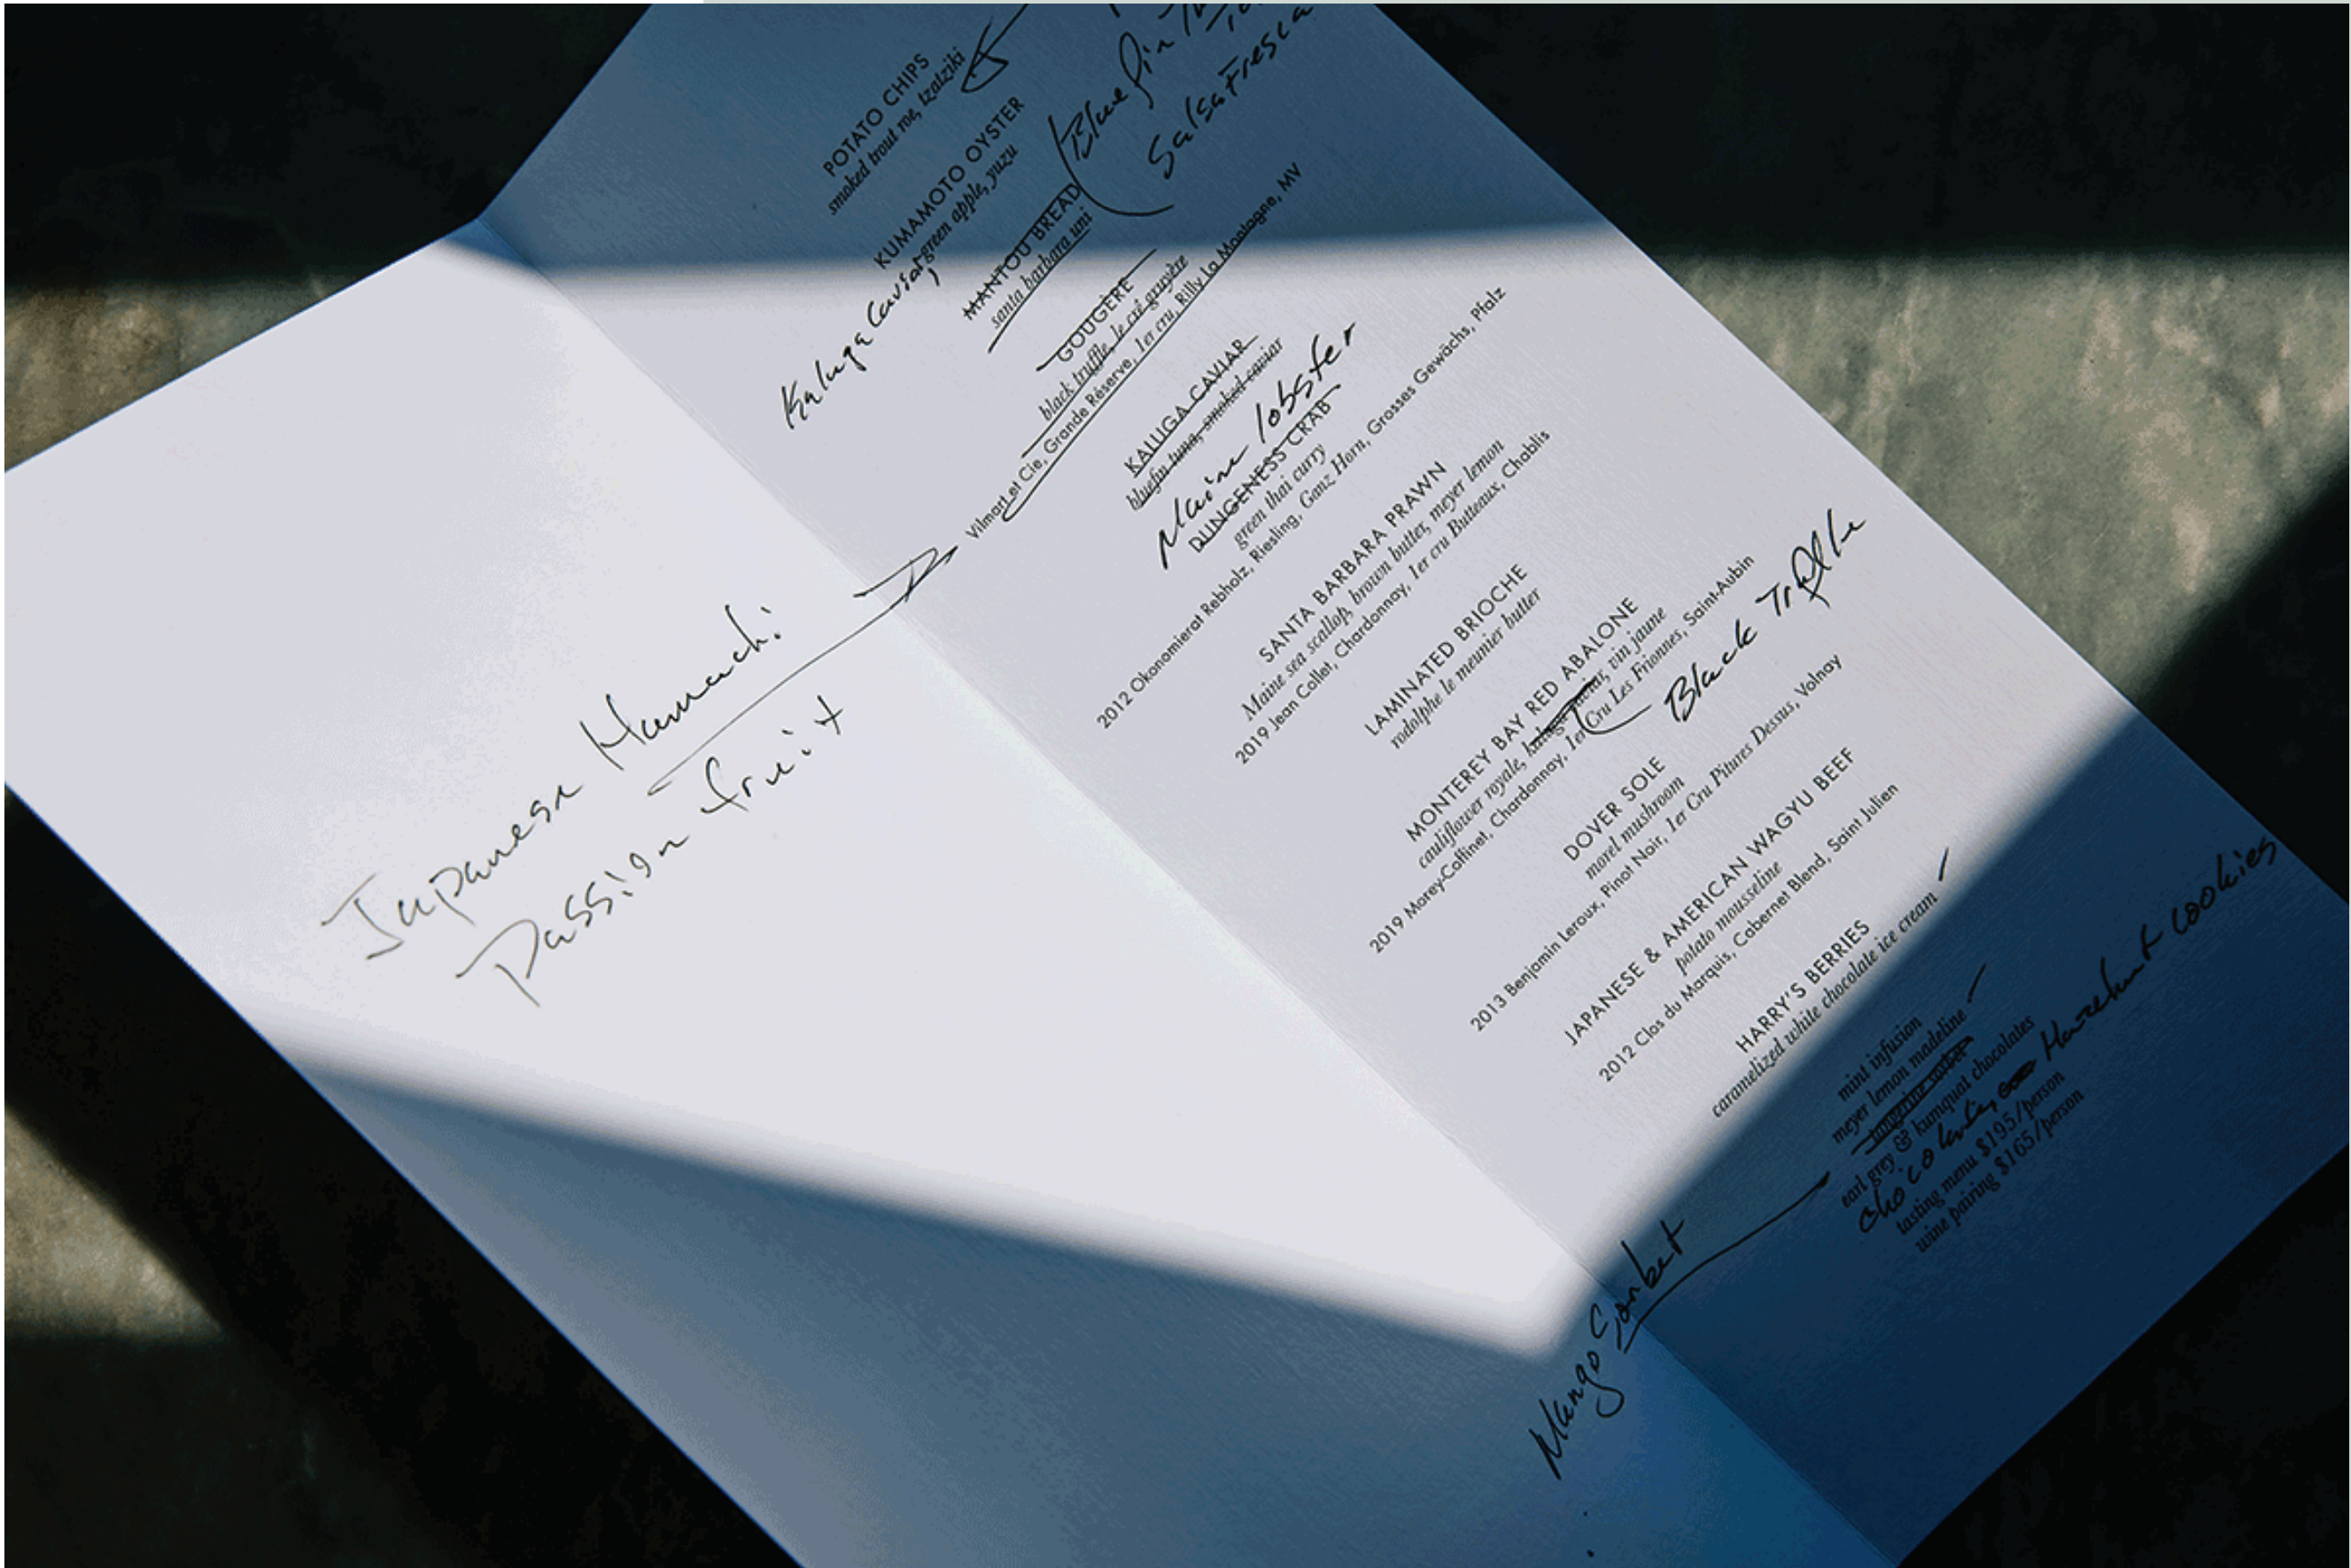 POTATO CHIPS
smoked trout roe, tzatziki
Bluefin
Salsa Fresca
KUMAMOTO OYSTER
Kaluga Caviar, green apple, yuzu
MANTOU BREAD
santa barbara uni
GOUGÈRE
black truffle, le cré gruyère
Vilmart et Cie, Grande Réserve, 1er cru, Rilly La Montagne, MV
Japanese Hamachi
Passion fruit
KALUGA CAVIAR
bluefin tuna, smoked caviar
Maine lobster
DUNGENESS CRAB
green thai curry
2012 Ökonomierat Rebholz, Riesling, Ganz Horn, Grosses Gewächs, Pfalz
SANTA BARBARA PRAWN
Maine sea scallop, brown butter, meyer lemon
2019 Jean Collet, Chardonnay, 1er cru Butteaux, Chablis
LAMINATED BRIOCHE
rodolphe le meunier butter
MONTEREY BAY RED ABALONE
cauliflower royale, kaluga caviar, vin jaune
Black Truffle
2019 Morey-Coffinet, Chardonnay, 1er Cru Les Frionnes, Saint-Aubin
DOVER SOLE
morel mushroom
2013 Benjamin Leroux, Pinot Noir, 1er Cru Pitures Dessus, Volnay
JAPANESE & AMERICAN WAGYU BEEF
potato mousseline
2012 Clos du Marquis, Cabernet Blend, Saint Julien
HARRY'S BERRIES
caramelized white chocolate ice cream
mint infusion
meyer lemon madeline
tangerine sorbet
Mango Sorbet
earl grey & kumquat chocolates
chocolate Hazelnut cookies
tasting menu $195/person
wine pairing $165/person